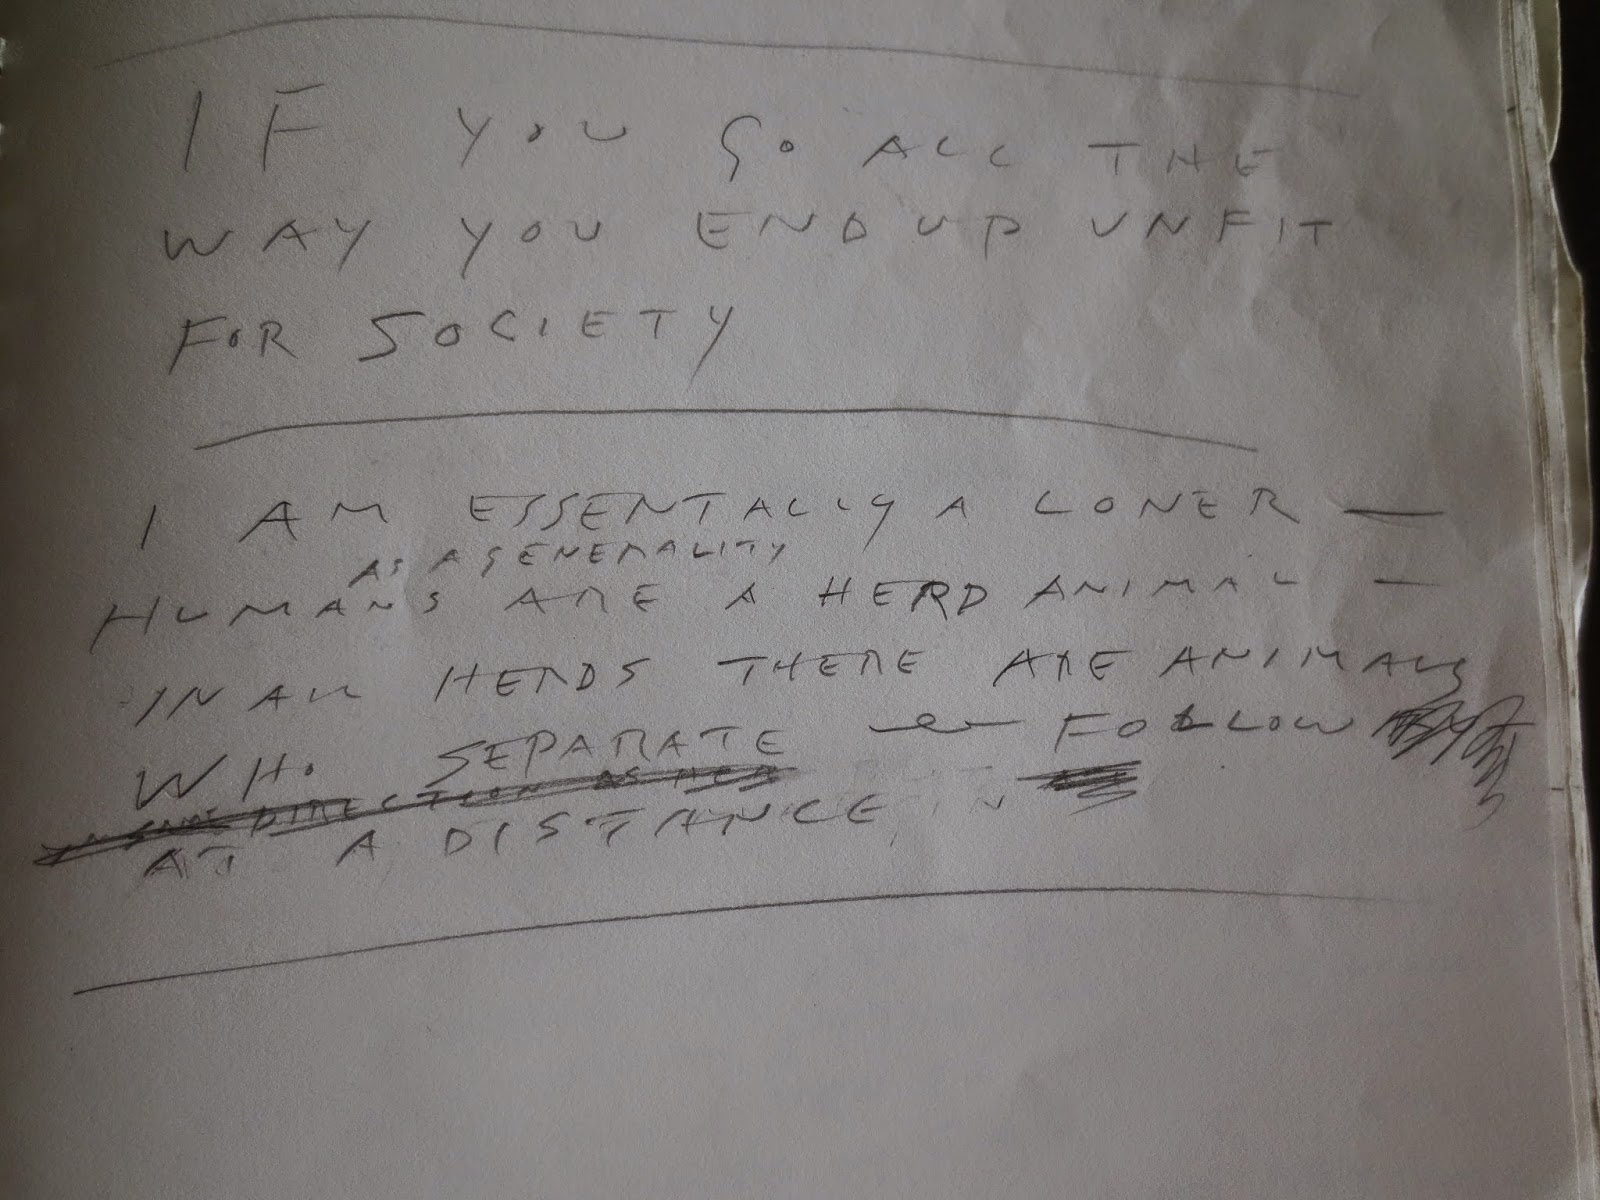 IF YOU GO ALL THE
WAY YOU END UP UNFIT
FOR SOCIETY
I AM ESSENTIALLY A LONER —
AS A GENERALITY
HUMANS ARE A HERD ANIMAL —
IN ALL HERDS THERE ARE ANIMALS
WHO SEPARATE — FOLLOW
DIRECTION AS HER
AT A DISTANCE IN